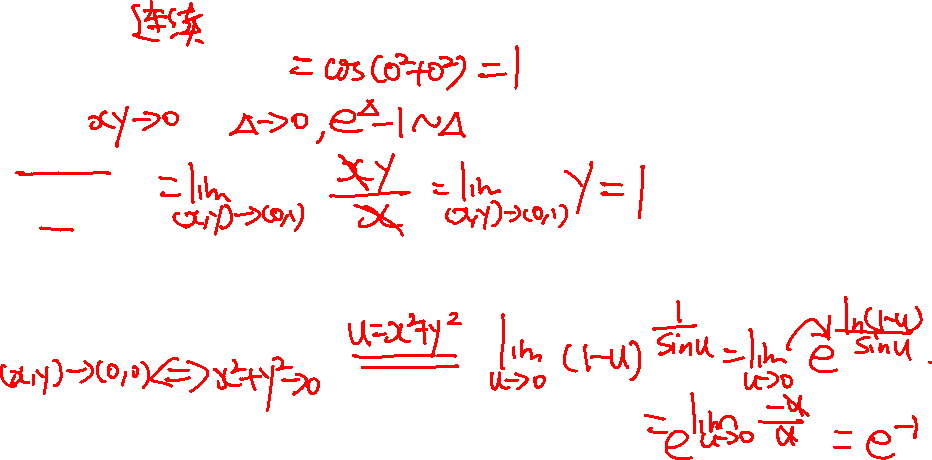 连续
= cos(0²+0²) = 1
xy→0 Δ→0, e^Δ-1~Δ
= lim_{(x,y)→(0,1)} xy/x = lim_{(x,y)→(0,1)} y = 1
(x,y)→(0,0)<=>x²+y²→0 u=x²+y² lim_{u→0} (1-u)^{1/sinu} = lim_{u→0} e^{ln(1-u)/sinu}.
= e^{lim_{u→0} -u/u} = e^{-1}